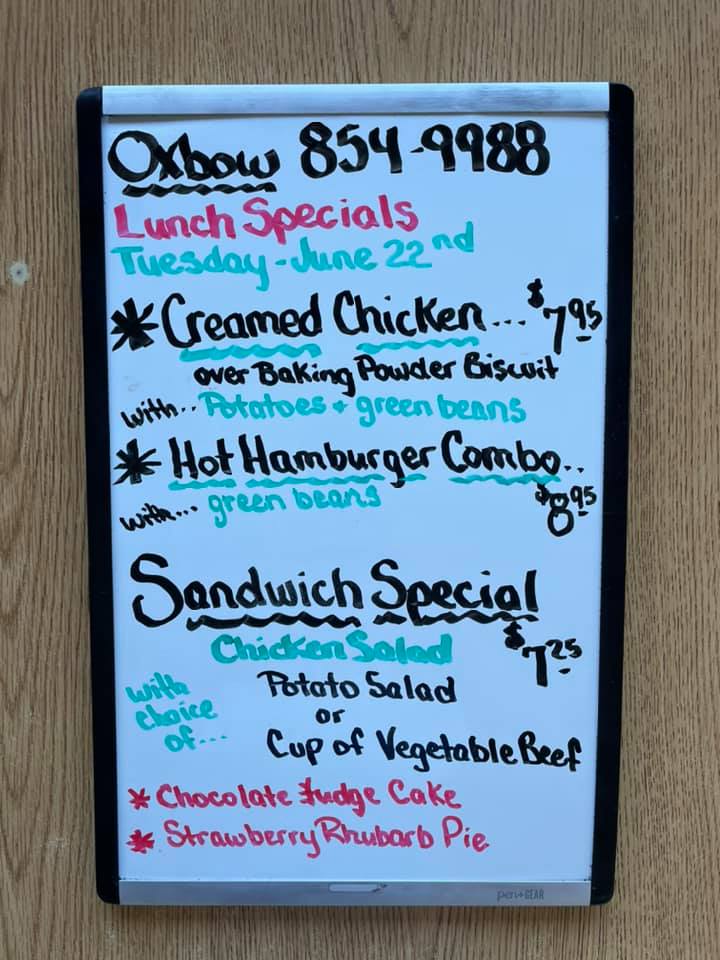 Oxbow 854-9988
Lunch Specials
Tuesday - June 22nd
* Creamed Chicken... $7.95
over Baking Powder Biscuit
with.. Potatoes + green beans
* Hot Hamburger Combo..
with... green beans $8.95
Sandwich Special
Chicken Salad $7.25
with choice of... Potato Salad
or
Cup of Vegetable Beef
* Chocolate Fudge Cake
* Strawberry Rhubarb Pie
pen+GEAR